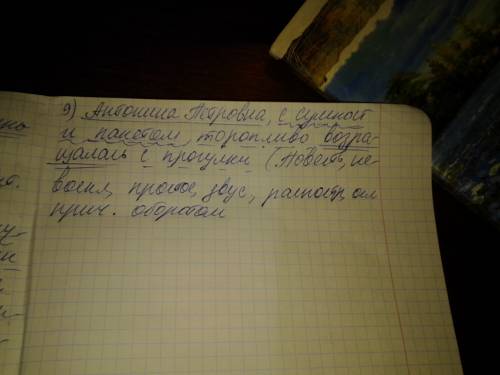 9) Антонина Петровна, с сумкой
и пакетом торопливо возра-
щалась с прогулки (Повест, не-
воскл, простое, двус, распостр, осл
прич. оборотом